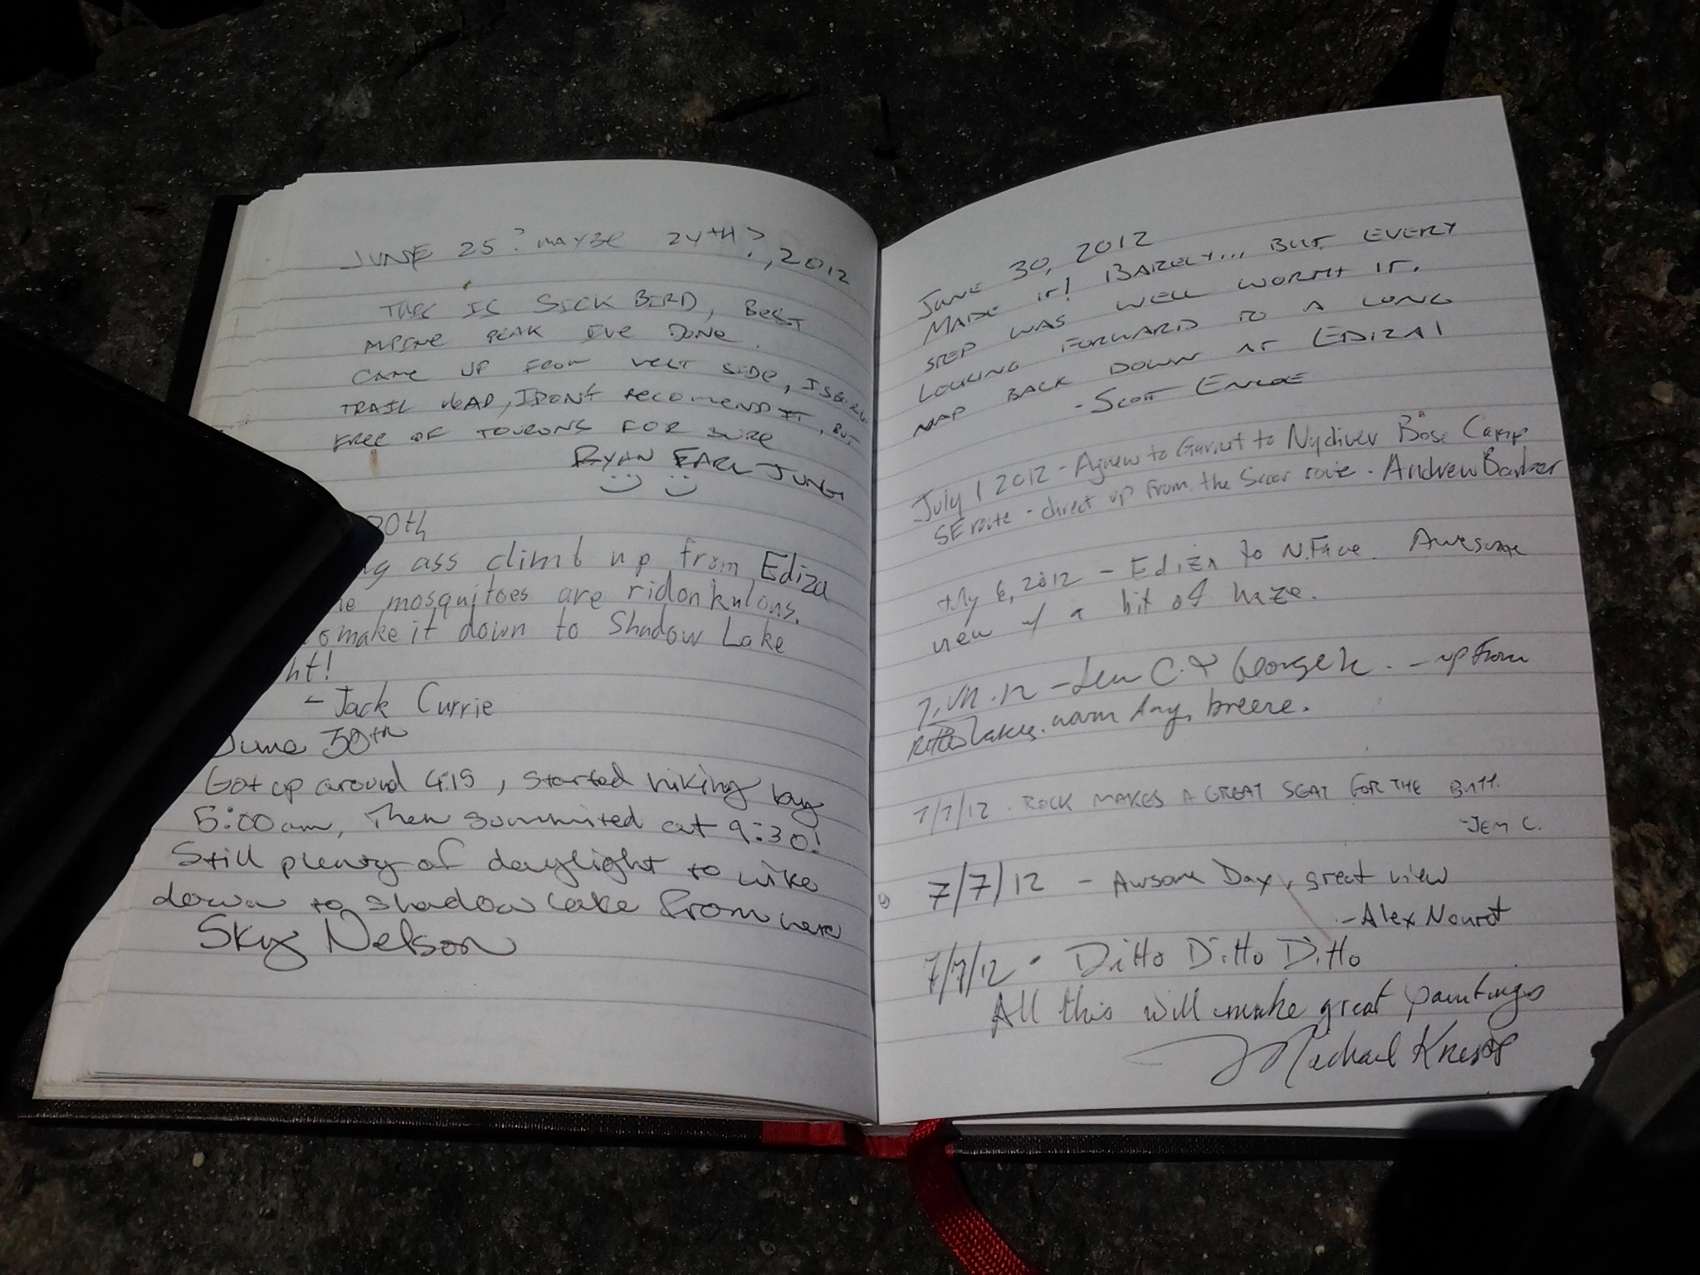 JUNE 25? MAYBE 24TH?, 2012
THIS IS SICK BIRD, BEST
ALPINE PEAK IVE DONE.
CAME UP FROM WEST SIDE,
TRAIL HEAD, I DON'T RECOMEND IT, BUT
FREE OF TOURONS FOR SURE
RYAN EARL JUNG
30th
ass climb up from Ediza
mosquitoes are ridonkulous.
make it down to Shadow Lake
- Jack Currie
June 30th
Got up around 4:15, started hiking by
5:00 am, Then summited at 9:30!
Still plenty of daylight to hike
down to shadow lake from here
Sky Nelson
JUNE 30, 2012
MADE IT! BARELY... BUT EVERY
STEP WAS WELL WORTH IT.
LOOKING FORWARD TO A LONG
NAP BACK DOWN AT EDIZA!
- SCOTT
July 1 2012 - Agnew to Garnet to Nydiver Base Camp
SE route - direct up from the route - Andrew
July 6, 2012 - Ediza to N.Face. Awesome
view w/ a bit of haze.
7.VII.12 - Jem C. & George - up from
Ritter Lakes. warm day, breeze.
7/7/12. ROCK MAKES A GREAT SEAT FOR THE BUTT.
-JEM C.
7/7/12 - Awsome Day, great view
- Alex
7/7/12 • Ditto Ditto Ditto
All this will make great paintings
Michael